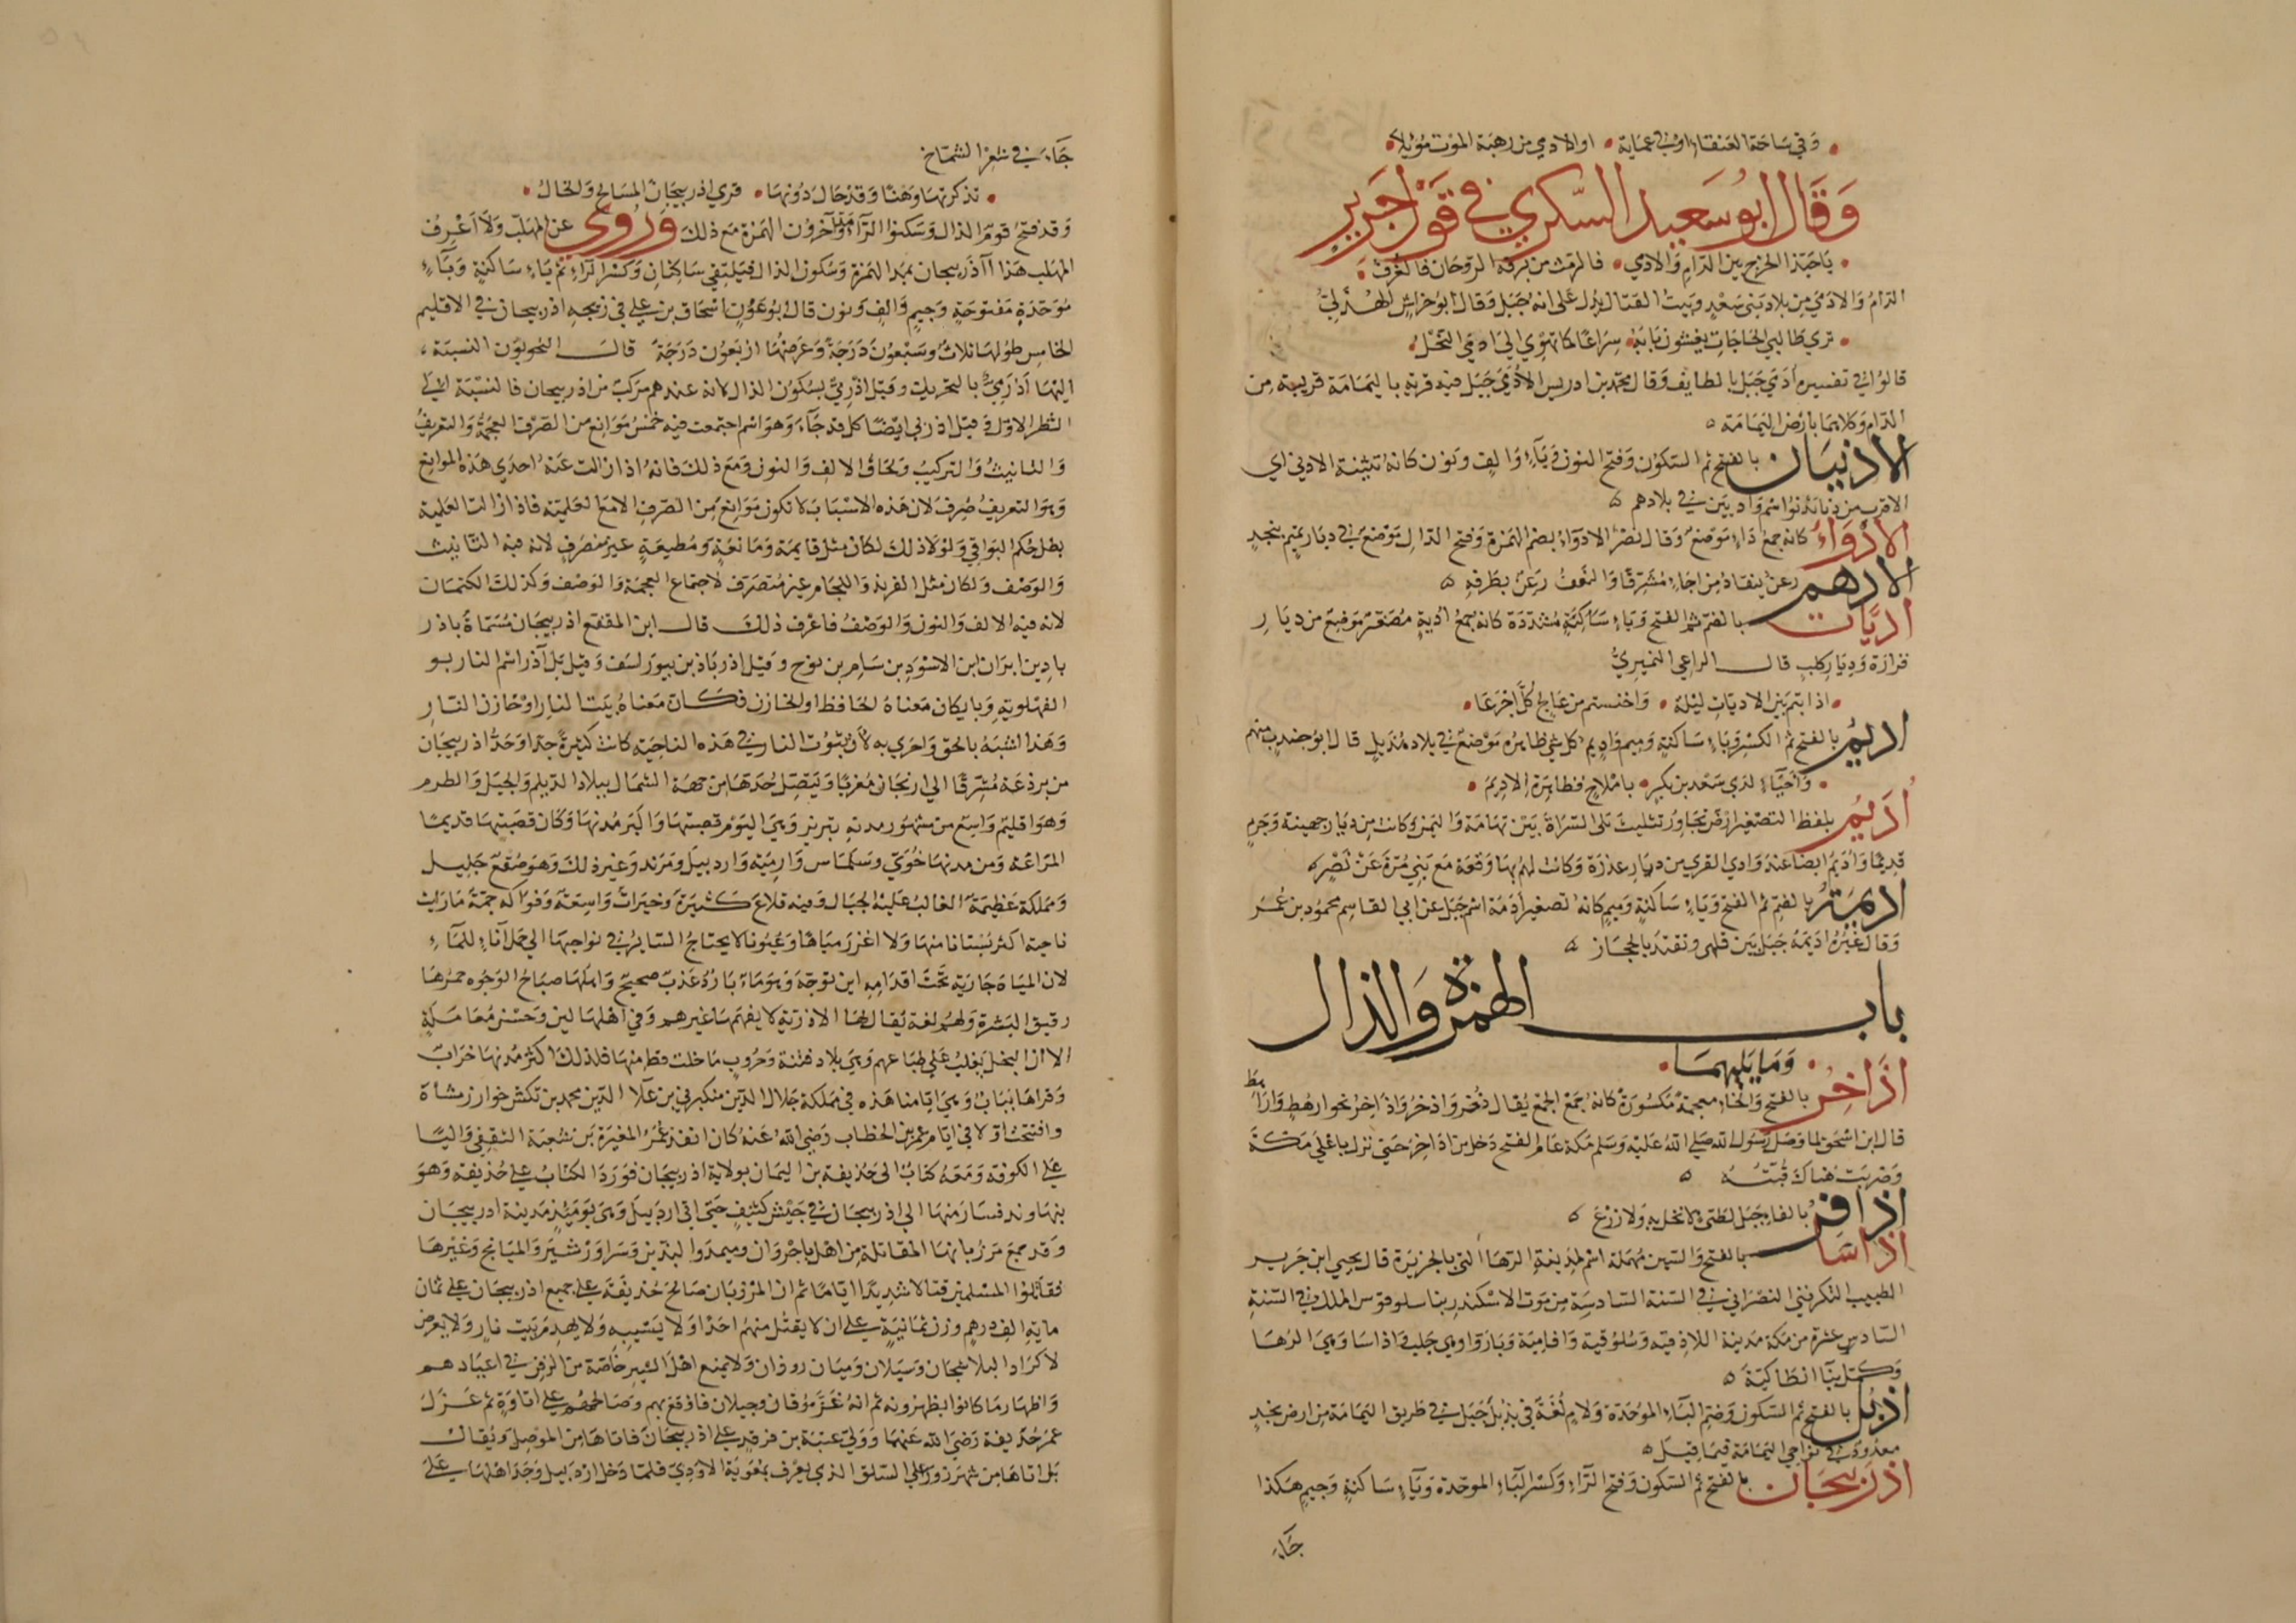 وَفي سَاحَة العَنقاءِ اوْ في عَمايَة • او الادمي من رهبَة الموْت مَؤيلاَ •
وَقَالَ ابوُ سَعيد السّكري في قَوْل جَرير
• يَاحَبّذا الخرج بين الدّامِ وَالادمي • فالرمْث من برقة الرّوحَان فالغرَفُ •
الدّامُ وَالادَميَ مِن بلاد بَني سَعْدٍ وَبَيتُ القتّال يَدل عَلى انه جَبَل وَقالَ ابوُ خراشٍ الهُذَليّ
• تري طالبي الحَاجَاتِ يغشَون بَابَهُ • سِرَاعًا كما تهْوِي الي اَدَميَ النحْلُ •
قالوُا في تفسيره اَدَمي جَبَل بالطايف وَقالَ محمّد بن ادريس الاُدَميَ جَبَل فيه قرية باليَمَامَة قريبة مِن
الدّام وَكلاهمَا بارْض اليَمَامَة ه
الادنيَان بالفتح ثم السّكوُن وَفتح النون وَيَآءٍ وَالِف وَنوُن كانهُ تثنية الادني اي
الاقرب من دَنا يَدنوُ اسْم وَادِيَين في بلادهم ه
الاَدْوَاءُ كانه جمعُ دَاءٍ مَوَضع وَقالَ نصْر الادوَاءُ بضمّ الهَمْزة وَفتح الدّال مَوْضعَ في ديَار تميم بنجدٍ
الادهم رعنُ ينقادُ مِن اجَاءٍ مُشَرّقًا وَالنعَفُ رَعنُ بطَرفهِ ه
اُديَّات بالضمّ ثم الفتح وَيَاءٍ سَاكِنَةٍ مُشدّدَة كانهُ جمَعُ اُديةٍ مُصَغّر مَوَضعٌ من ديَارِ
فزارَة وَديَار كلبٍ قالَ الراعي النميريُّ
• اذا بتم بَين الاديّاتِ ليْلة • وَاخنستم من عَالج كلَّ اجْرَعَا •
اَديمُ بالفتح ثمّ الكسْر وَيَاءٍ سَاكنةٍ وَميم وَاديم كل شي ظاهرُه مَوْضعٌ في بلاد هُذَيلٍ قالَ ابوُ جندبٍ منهم
• وَاحيَاءٍ لدَي سَعْد بن بكرٍ • باملاحٍ فظاهِرَة الاديمَ •
اُدَيمُ بلفظ التصْغير ارْض تجَاورُ تثليثَ تلى السّرَاةَ بَيْن تهامَة وَاليَمن وَكانت مِن ديَار جهينة وَجَرمٍ
قدِيمًا وَاُدَيم ايضًا عند وَادي القرَي من ديَارِ عذرَة وَكانت لهم بهَا وَقعَة مَع بَني مُرّة عَنْ نَصْرٍ ه
اُديمَةُ بالضمّ ثمّ الفتح وَيَاءٍ سَاكنةٍ وَميمٍ كانهُ تصغير اَدَمَة اسْم جَبَل عن ابي القاسِم محموُد بن عُمَر
وَقالَ غيْرُه اُديَمة جَبَل بَين قلهى وتقتَد بالحجَاز ه
باب الهَمْزة وَالذال
• وَمَا يَليهمَا •
اَذَاخِرُ بالفتح وَالخاءِ معجمة مَكسُورَةٌ كانهُ جَمْعَ الجمْع يُقال ذُخر وَاذخرُ وَاَذاخِرُ نحو ارهُط وَارَاهط
قالَ ابن اسْحَق لما وَصَل رَسُول الله صَلي اللهُ عَليْه وَسَلم مَكة عَام الفتح دَخل من اذاخِر حَتى نزل باعْلي مَكّة
وَضربَت هُناك قُبَّتُهُ ه
اذافرُ بالفاءِ جَبَل لطَيٍّ لا نخل بهِ وَلا زرْعَ ه
اذاسَا بالفتح وَالسّين مُهملة اسْم لمدِينةِ الرّهَا التي بالجزيرَة قالَ يحيي ابن جَرير
الطبيب التكريتي النصْرَاني في السّنة السّادسَة مِن مَوت الاسْكندر بنا سلوقوس الملك في السّنة
السّادس عشرة من ملكه مَدينة اللاذقيّه وَسُلوُقية وَافامِيَة وَبَارَوا وهي حَلب وَاذاسَا وَهيَ الرُهَا
وَكَمّل بِنَا انطاكيَّة ه
اَذبُل بالفتح ثم السّكون وَضم البَآءِ الموَحَدة وَلامٍ لُغَةٌ في يَذبُلَ جَبَل في طَريق اليَمَامَة مِن ارض نجدٍ
معدُودٌ في نوَاحي اليَمَامَة فيمَا قيلَ ه
اَذرَبيجَان بالفتح ثم السّكون وَفتح الرّاءِ وَكسْر البَاءِ الموحَدة وَيَآءٍ سَاكنةٍ وَجيم هكذا
جَاءَ
جَاءَ في شعْر الشمَّاخ
• تذكرتهَا وَهنًا وَقدْ حَالَ دُونهَا • قري اذرَبيجَان المسَالح وَالخالُ •
وَقد فتحُ قومٌ الذال وَسَكنوُا الرّآءَ وَمَدّ آخروُن الهَمزة مَع ذلك وَروُي عن المهَلب وَلا اَعْرِفُ
المهَلب هَذا آاذَربيجان بمَد الهَمْزة وَسُكون الذال فيَلتقي سَاكِنانِ وَكسْر الرّاءِ ثم يَاءٍ سَاكنةٍ وَبَآءٍ
مُوَحّدَةٍ مَفتوحَةٍ وَجيمٍ وَالِف وَنون قالَ ابُو عَوْنٍ اسْحَاق بن عِلي في زيجهِ اذربيجان في الاقليم
الخامِس طوُلهَا ثلاثٌ وَسَبْعُونَ دَرَجَةً وَعَرضهَا ارْبَعُوُن دَرَجَة قالَ النحويّوُن النسبَة
اليهَا اَذَرِيٌّ بالتحريك وَقيل اَذْرِيٌّ بسكوُن الذال لانه عندهم مركبٌ من اذرَبيجان فالنسْبَة الي
الشطر الاوّل وَقيل اذرَبي ايضًا كل قد جَآءَ وَهوَ اسْم اجتمعت فيه خمَسُ مَوَانع من الصّرْف العجمةُ وَالتعريفُ
وَالتانيثُ وَالتركيبُ وَلحَاقُ الالِف وَالنون وَمَع ذلك فانهُ اذا زالت عَنهُ احدَي هَذهِ الموانع
وَهوَ التعريفُ صُرِفَ لان هَذه الاسْبَابَ لا تكون مَوَانعَ مِن الصّرف الا مَع العَلميّة فاذا زالت العَلمية
بطل حُكم البَوَاقي وَلوْلا ذلك لكان مثل قايمَة وَمَانعَةٍ وَمُطيعَةٍ غير منصَرِفٍ لانه فيه التّانيث
وَالوَصْف وَلكان مثل الفرند وَاللجَام غير مُنصَرَف لاجتماع العجمَة وَالوَصْف وَكذلك الكتمَان
لانه فيه الالف وَالنون وَالوَصْفُ فاعْرف ذلك قالَ ابن المقفّع اذربيجَان مُسَمّاة باذر
باد بن ايرَان ابن الاسْوَدِ بن سَامِ بن نوُح وَقيل اذربَاذ بن بيوَرَسَف وَقيل بَل آذر اسْم النار بـ
الفهْلويةِ وَبايكان مَعناهُ الحَافظ او الخازن فكان مَعناهُ بَيتَ النارِ اوْ خَازن النّارِ
وَهَذا اشبَهُ بالحق وَاحرَي به لانّ بيُوُت النار في هَذه الناحِيَة كانت كثيرةً جدّا وَحَدُّ اذربيجَان
من برذعَة مُشرّقًا الي ارزنجَان مُغرِبًا وَيَتصِل حَدّهَا من جهَة الشمَال ببلاد الديلم وَالجيَل وَالطرم
وَهوَ اقليم وَاسِع من مَشهوُر مدنهِ تبريز وَهيَ اليَوْم قصبتهَا وَاكبَر مُدنهَا وَكان قصَبَتهَا قديمًا
المرَاغة وَمن مدنهَا خُوَيّ وَسَلمَاس وَارمِيَه وَاردبيَل وَمَرَند وَغير ذلك وَهوَ صُقعٌ جَليل
وَمملكة عَظيمَة الغالبُ عليْهَا الجبَال وَفيه قلاعٌ كثيرَة وَخيرَاتٌ وَاسعَة وَفوَاكه جمّة مَا رَايت
ناحية اكثر بُسْتانا منهَا وَلا اغزر ميَاهًا وَعيُونا لا يحتاج السَّاير في نوَاحِيهَا الي حَمل آناءٍ للمَآءِ
لان الميَاه جَاريَة تحتَ اقدَامِهِ اين توجّهَ وَهوَ مَاءٌ بَارد عَذبٌ صحيحٌ وَاهلهَا صبَاحُ الوَجُوه حمرُهَا
رقيق البَشرَة وَلهُم لغة يُقال لهَا الاذريّة لا يفهَمهَا غيرهم وَفي اهْلها لين وَحُسْن مُعَامَلةٍ
الا ان البخل يَغلبُ عَلي طبَاعهم وَهيَ بلاد فتنَة وَحرُوبٍ مَا خلت قط منها فلذلك اكثر مُدنهَا خرَابٌ
وَقرَاهَا يَبَابٌ وَفي ايّامنا هَذه في مملكة جَلال الدّين منكبرني بن عَلا الدّين محمد بن تكش خوارزمشاة
وافتتحتْ اوّلا في ايّام عمر بن الخطاب رَضي اللهُ عَنهُ كان انفذ عُمَرُ المغيرَة بن شُعبَة الثقفي وَاليًا
عَلي الكوفة وَمَعَه كتابٌ الى حُذيفة بن اليَمان بولاية اذربيجَان فوَرَدَ الكتابُ علي حُذيفة وَهوَ
بنهَاوَند فسَارَ منهَا الي اذربيجَان في جَيْش كثيفٍ حَتى اتي اردبيل وَهيَ يوَميْذٍ مَدينة ادربيجَان
وَقد جمَع مَرزُبَانهَا المقاتلة مِن اهْل باجْرَوَان وميمذ وَالبذّين وَسَرَاو وَشيرَ وَالميَانج وَغيْرهَا
فقاتلوُا المسْلمين قتالا شديدًا ايّامًا ثم ان المرْزبَان صَالح حُذيفَة علي جميع اذربيجَان علي ثمان
مايةِ الف درهمٍ وزن ثمَانيةٍ علي ان لا يقتل منهُم احَدًا وَلا يَسبيه وَلا يهدِمَ بَيت نارٍ وَلا يَعرض
لاكرَاد البلاشجان وَسَبلان وَميَان روذان وَلا يمنع اهْلَ الشيز خَاصّة من الزفن في اعيَادهم
وَاظهَارمَا كانوُا يظهرُونه ثم انهُ غزَى مُوقان وَجيلان فاوْقعَ بهم وَصَالحهُم علي اتاوَةٍ ثم عَزَلَ
عمَرُ حُذيفة رَضي الله عَنهمَا وَوَلي عتبة بن فرقدٍ علي اذربيجَان فاتاهَا مِن الموصِل وَيُقال
بَل اتاهَا مِن شهرَزور علي السّلق الذي يعْرف بمُعَويَة الاوْديّ فلمّا دَخل ارْدَبيل وَجَد اهلهَا عَلي